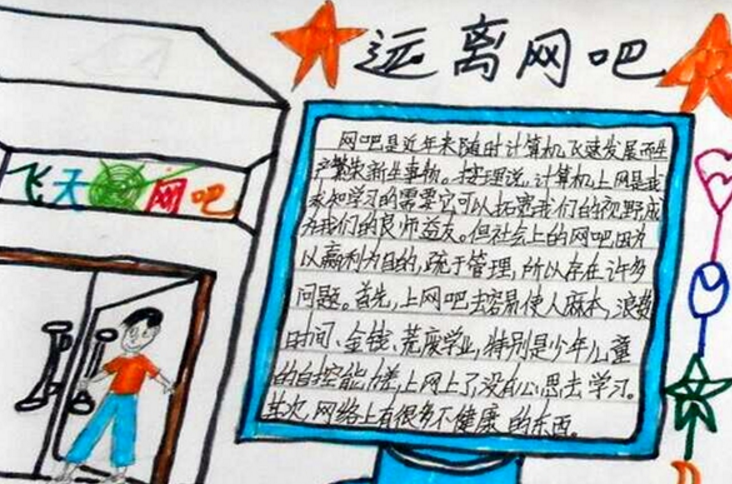 远离网吧
飞天网吧
网吧是近年来随时计算机飞速发展而生
产繁荣新生事物。按理说,计算机上网是我
求知学习的需要它可以拓宽我们的视野成
为我们的良师益友。但社会上的网吧因为
以赢利为目的,疏于管理,所以存在许多
问题。首先,上网吧去容易使人麻木,浪费
时间、金钱、荒废学业,特别是少年儿童
的自控能差,上网上了,没有心思去学习。
其次,网络上有很多不健康的东西。